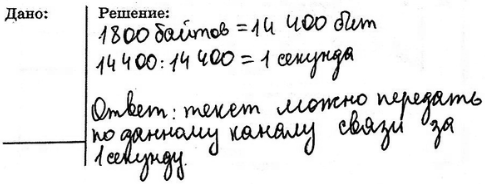 Дано:
Решение:
1800 байтов = 14 400 бит
14400 : 14 400 = 1 секунда
Ответ: текст можно передать
по данному каналу связи за
1 секунду.